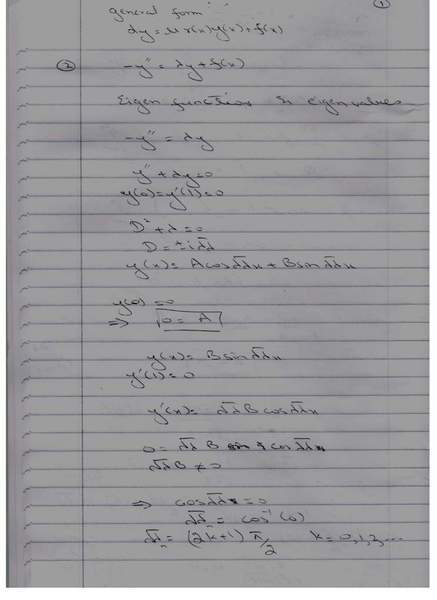 ①
general form
dy = μ r(x) y(x) + f(x)
② -y'' = λy + f(x)
Eigen functions & eigenvalues
-y'' = λy
y'' + λy = 0
y(0) = y'(1) = 0
D² + λ = 0
D = ± i√λ
y(x) = A cos√λx + B sin√λx
y(0) = 0
⇒ 0 = A
y(x) = B sin√λx
y'(1) = 0
y'(x) = √λ B cos√λx
0 = √λ B cos√λ
√λ B ≠ 0
⇒ cos√λ = 0
√λ = cos⁻¹(0)
√λ = (2k+1) π/2 k = 0,1,2,...